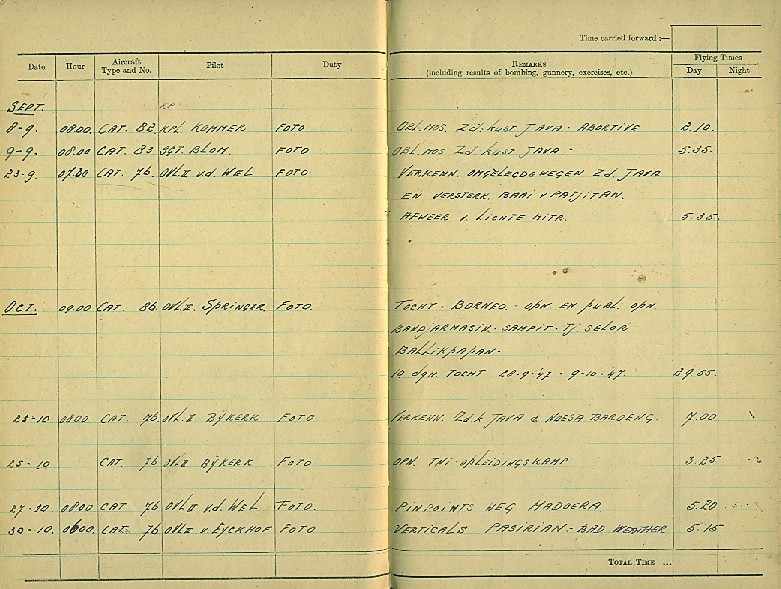 Time carried forward :—
Date Hour Aircraft Type and No. Pilot Duty REMARKS (including results of bombing, gunnery, exercises, etc.) Flying Times Day Night
SEPT.
8-9. 08.00 CAT. 82 KPL KOMMER FOTO OBL. MOS. Zd. KUST JAVA - ABORTIVE 2.10.
9-9. 08.00 CAT. 83 SGT. BLOM. FOTO OBL. MOS Zd. KUST JAVA - 5.35.
23-9. CAT. 76 OVL II v.d. WEL FOTO VERKENN. OMGELEGDE WEGEN Zd. JAVA
EN VERSTERK. BAAI v PATJITAN.
AFWEER v. LICHTE MITR. 5.35.
OCT. 09.00 CAT 86 OVL II. SPRINGER FOTO. TOCHT - BORNEO - OPN. EN PUBL. OPN.
BANDJARMASIN - SAMPIT - TJ. SELOR
BALLIKPAPAN -
10 DGN. TOCHT 28-9-'47 - 9-10-'47. 29.55.
08.00 CAT. 76 OVL II BŸKERK FOTO VERKENN. Zd. k JAVA & NOESA BAROENG. 7.00
25-10 CAT. 76 OVL II BŸKERK FOTO OPN. TNI-OPLEIDINGSKAMP 3.25
27-10 08.00 CAT 76 OVL II v.d. WEL FOTO. PINPOINTS WEG MADOERA 5.20
30-10. CAT. 76 OVL II v EYCKHOF FOTO VERTICALS PASIRIAN - BAD WEATHER 5.15
TOTAL TIME ...